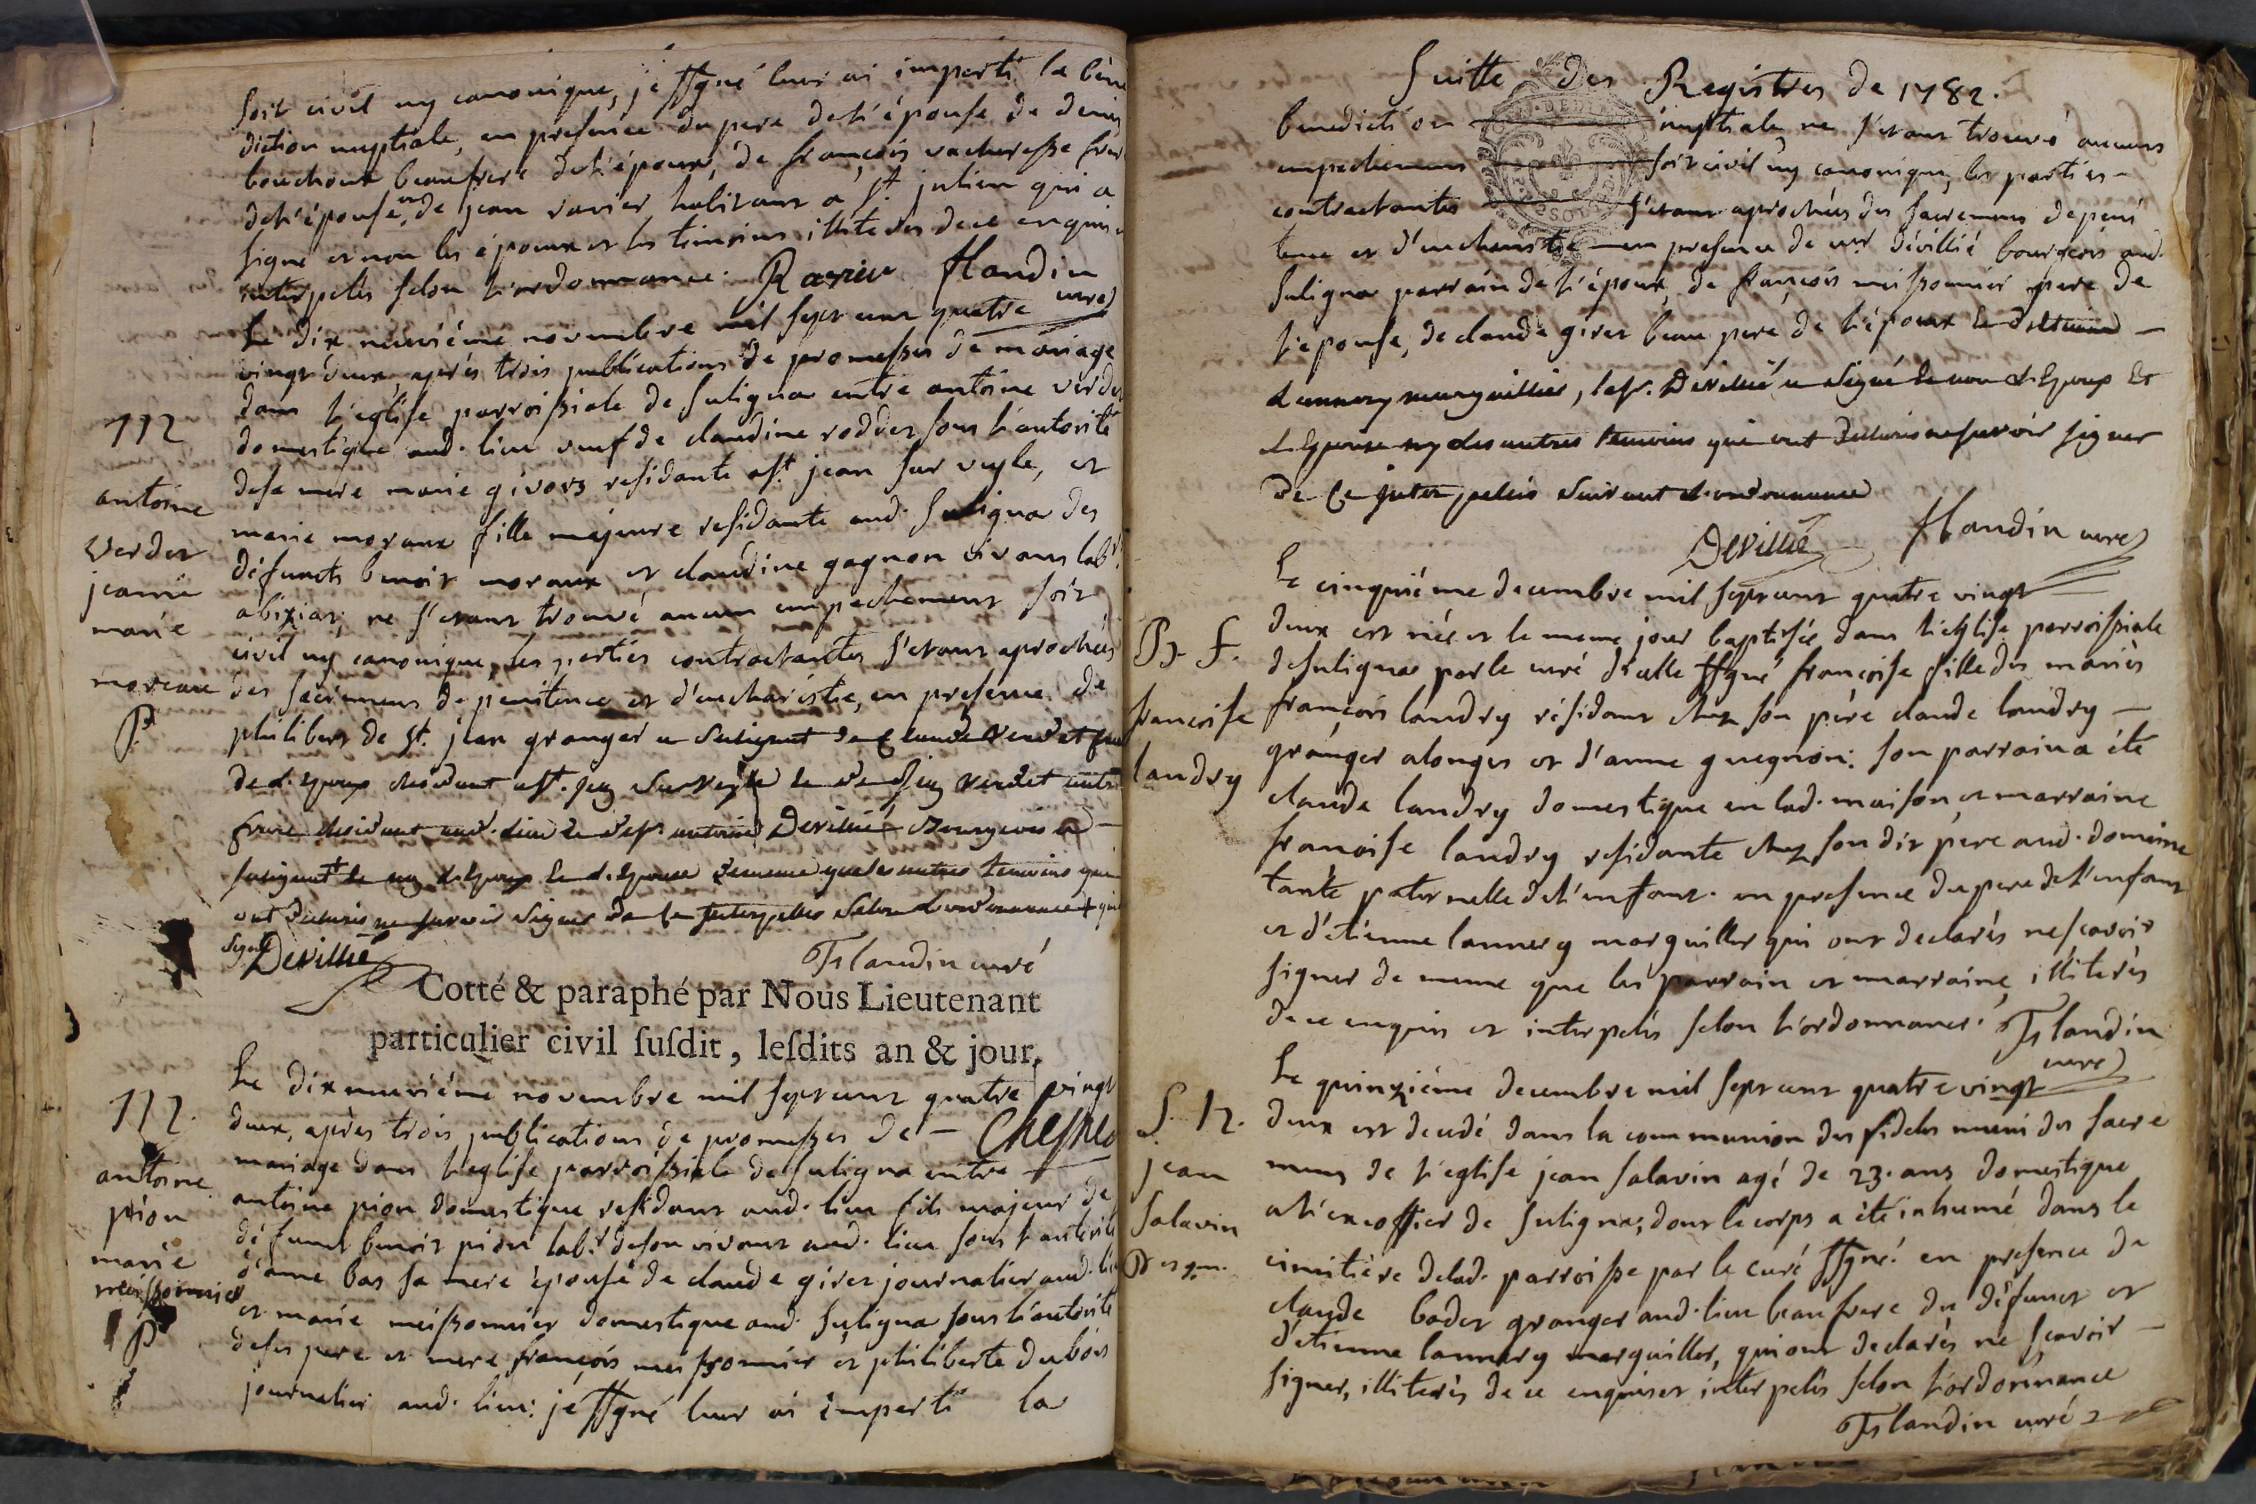 soit civil ny canonique, je ssgné leur ai imparti la béné
diction nuptiale, en presence du pere de l'épouse de denis
bouchoux beaufrere de l'époux, de françois vacheresse frere
de l'épouse, et de jean ravier habitant a st. julien qui a
signé et non les époux et les timoins illiterés de ce enquis et
interpelés selon l'ordonnance. Ravier flandin
curé
Le dix neuviéme novembre mil sept cent quatre
vingt deux, aprés trois publications de promesses de mariage
dans l'eglise parroissiale de suligna entre antoine verdet
domestique aud. lieu veuf de claudine roddet sous l'autorité
de sa mere marie givors residante a st. jean sur veyle, et
marie moraux fille majeure residante aud. suligna des
défuncts benoit moraux et claudine gagnon vivans lab.rs
abiziat; ne s'etant trouvé aucun empechement soit
civil ny canonique, les parties contractantes s'etant aprochées
des sacremens de penitence et d'eucharistie, en presence de
philibert de st. jean granger a Suligniat de Claude Verdet frere
de l'Epoux résidant a st. jean Sur veyle et de jean Verdet autre
frere résidant aud. lieu et de sr. antoine Devillié Bourgeois a
suligniat et ny l'Epoux et l'Epouse de meme que les autres temoins qui
ont declarés ne savoir Signer de ce Interpellés Selon L'ordonnance
Signé Devillié
flandin curé
112
antoine
verdet
jeanne
marie
moreau
P.
Cotté & paraphé par Nous Lieutenant
particulier civil suſdit, leſdits an & jour.
Chesne
Le dixneuviéme novembre mil sept cent quatre vingt
deux, aprés trois publications de promesses de —
mariage dans l'eglise parroissiale de suligna entre
antoine pion domestique residant aud. lieu fils majeur de
défunct benoit pion lab.r de son vivant aud. lieu sous l'autorité
d'anne bas sa mere épouse de claude giret journalier aud. lieu
et marie meissonnier domestique aud. suligna sous l'autorité
de ses pere et mere françois meissonnier et philiberte dubois
journalier aud. lieu: je ssgné leur ai imparti la
112.
antoine
pion
marie
meissonnier
P
Suitte des Registres de 1782.
benediction nuptiale, ne s'etant trouvé aucuns
empechemens soit civil ny canonique, les parties —
contractantes s'etant aprochées des sacremens de peni
tence et d'eucharistie en presence de mr. dévillié bourgeois aud.
suligna parrain de l'époux, de françois meissonnier pere de
l'épouse, de claude giret beau pere de l'époux et d'étienne —
Lannery marguillier, le sr. Devillié a Signé et non L'Epoux et
L'Epouse ny les autres temoins qui ont declarés ne savoir signer
de Ce Interpellés Suivant L'ordonnance
Devillié flandin curé
Le cinquiéme decembre mil sept cent quatre vingt
deux est née et le meme jour baptisée dans l'eglise parroissiale
de suligna par le curé d'icelle ssgné françoise fille des mariés
françois landry résidant chez son pére claude landry —
granger alonges et d'anne guegnon: son parrain a été
claude landry domestique en lad. maison, et marraine
francoise landry residante chez son dit pere aud. domeine
tante paternelle de l'enfant. en presence du pere de l'enfant
et d'etienne lannery marguiller qui ont declarés ne scavoir
signer de meme que les parrain et marraine, illiterés
de ce enquis et interpelés selon l'ordonnance. flandin
curé
B. F.
francoise
landry
Le quinziéme decembre mil sept cent quatre vingt
deux est decedé dans la communion des fideles muni des sacre
mens de l'eglise jean salavin agé de 23. ans domestique
a l'excoffier de suligna; dont le corps a été inhumé dans le
cimitiére de lad. parroisse par le curé ssgné. en presence de
claude bodet granger aud. lieu beaufrere du défunct et
d'etienne lannery marguiller, qui ont declarés ne scavoir —
signer, illiterés de ce enquis et interpelés selon l'ordonnance
flandin curé
S. h.
jean
salavin